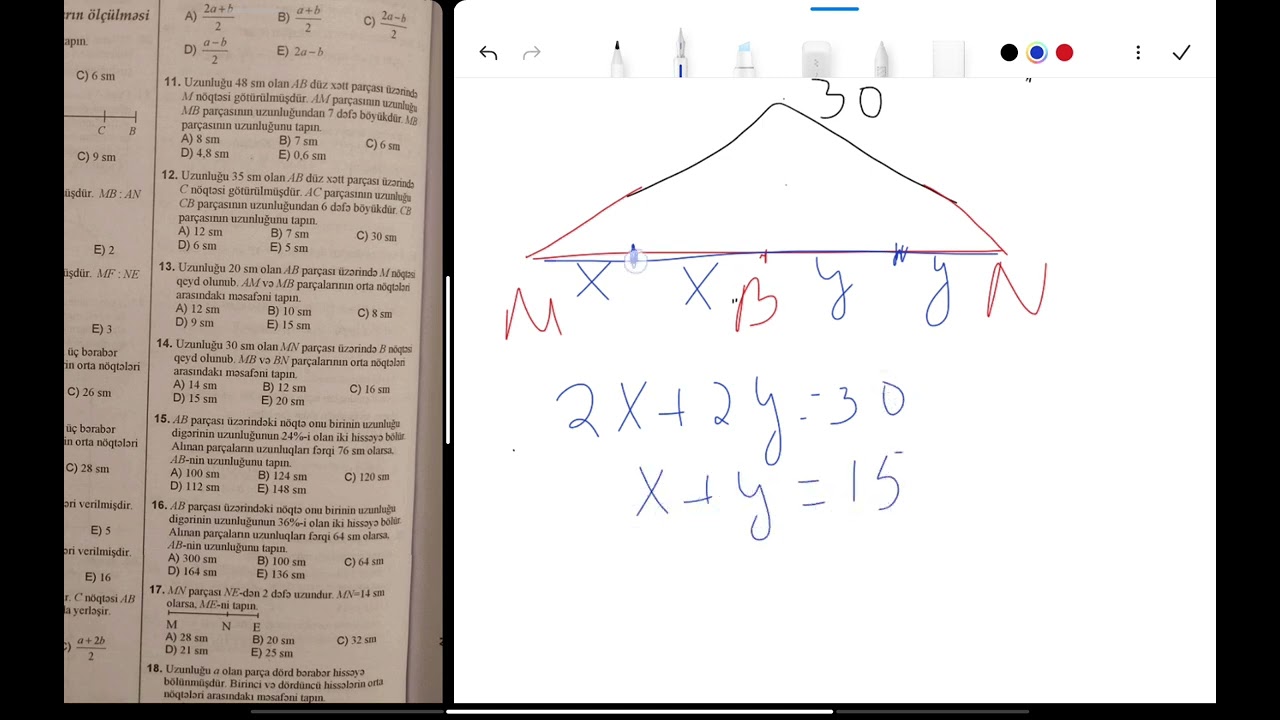 rın ölçülməsi
apın.
C) 6 sm
C B
C) 9 sm
üşdür. MB : AN
E) 2
üşdür. MF : NE
E) 3
üç bərabər
in orta nöqtələri
C) 26 sm
üç bərabər
in orta nöqtələri
C) 28 sm
əri verilmişdir.
E) 5
əri verilmişdir.
E) 16
r. C nöqtəsi AB
a yerləşir.
a + 2b / 2
A) 2a + b / 2 B) a + b / 2 C) 2a − b / 2
D) a − b / 2 E) 2a − b
11. Uzunluğu 48 sm olan AB düz xətt parçası üzərində
M nöqtəsi götürülmüşdür. AM parçasının uzunluğu
MB parçasının uzunluğundan 7 dəfə böyükdür. MB
parçasının uzunluğunu tapın.
A) 8 sm B) 7 sm C) 6 sm
D) 4,8 sm E) 0,6 sm
12. Uzunluğu 35 sm olan AB düz xətt parçası üzərində
C nöqtəsi götürülmüşdür. AC parçasının uzunluğu
CB parçasının uzunluğundan 6 dəfə böyükdür. CB
parçasının uzunluğunu tapın.
A) 12 sm B) 7 sm C) 30 sm
D) 6 sm E) 5 sm
13. Uzunluğu 20 sm olan AB parçası üzərində M nöqtəsi
qeyd olunub. AM və MB parçalarının orta nöqtələri
arasındakı məsafəni tapın.
A) 12 sm B) 10 sm C) 8 sm
D) 9 sm E) 15 sm
14. Uzunluğu 30 sm olan MN parçası üzərində B nöqtəsi
qeyd olunub. MB və BN parçalarının orta nöqtələri
arasındakı məsafəni tapın.
A) 14 sm B) 12 sm C) 16 sm
D) 15 sm E) 20 sm
15. AB parçası üzərindəki nöqtə onu birinin uzunluğu
digərinin uzunluğunun 24%-i olan iki hissəyə bölür.
Alınan parçaların uzunluqları fərqi 76 sm olarsa,
AB-nin uzunluğunu tapın.
A) 100 sm B) 124 sm C) 120 sm
D) 112 sm E) 148 sm
16. AB parçası üzərindəki nöqtə onu birinin uzunluğu
digərinin uzunluğunun 36%-i olan iki hissəyə bölür.
Alınan parçaların uzunluqları fərqi 64 sm olarsa,
AB-nin uzunluğunu tapın.
A) 300 sm B) 100 sm C) 64 sm
D) 164 sm E) 136 sm
17. MN parçası NE-dən 2 dəfə uzundur. MN=14 sm
olarsa, ME-ni tapın.
M N E
A) 28 sm B) 20 sm C) 32 sm
D) 21 sm E) 25 sm
18. Uzunluğu a olan parça dörd bərabər hissəyə
bölünmüşdür. Birinci və dördüncü hissələrin orta
nöqtələri arasındakı məsafəni tapın.
30
x x y y
M B N
2x + 2y = 30
x + y = 15